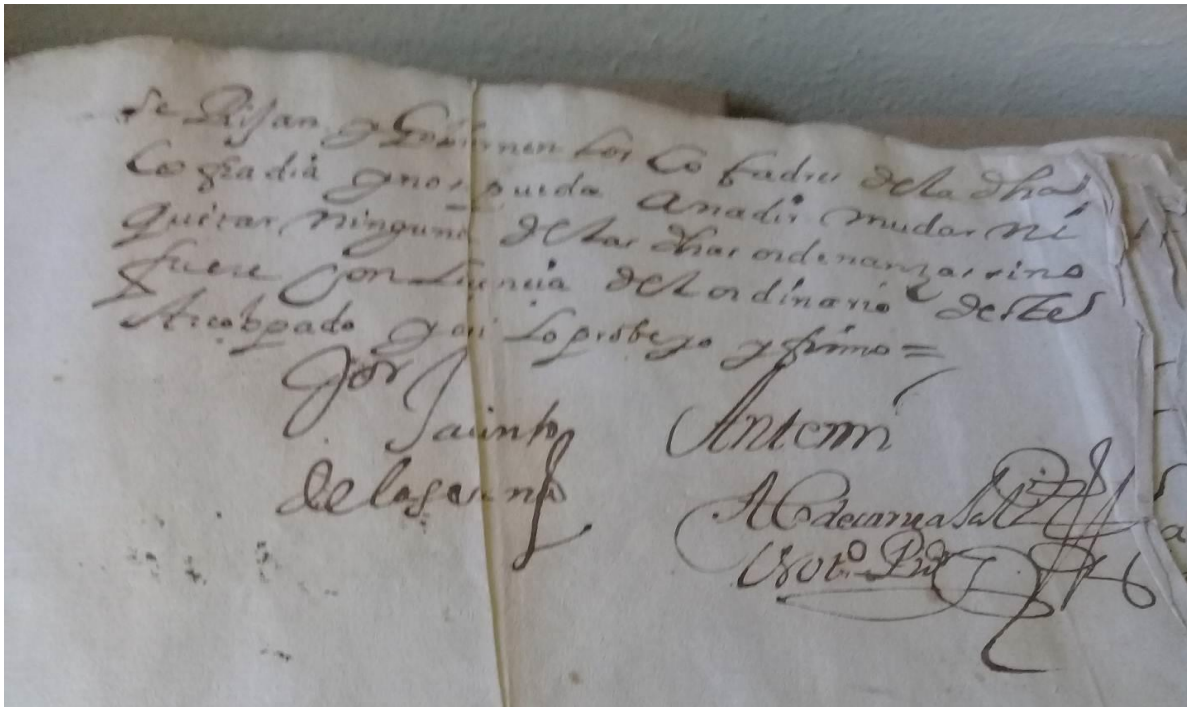 se Rijan y Gobiernen los Cofadres de la dha
Cofradia y no se pueda Anadir mudar ni
quitar ninguna de las dhas ordenanzas sino
fuere con licencia del ordinario deste
Arcobpado y asi lo probeyo y firmo =
Jacinto
de la
Ante mi
Noto